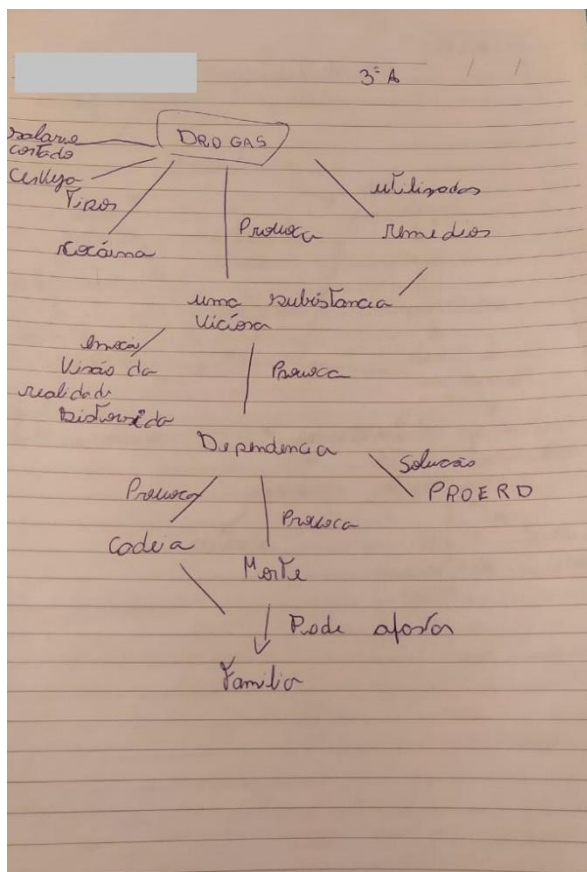 3ª A / /
DROGAS
cortado
Cerveja
Tipos
utilizados
Cocáina
Provoca
remedios
uma substancia
Viciosa
Visão da
realidade
Distorcida
Provoca
Dependencia
Solucão
PROERD
Provoca
Provoca
Cadeia
Morte
Pode afastar
Familia